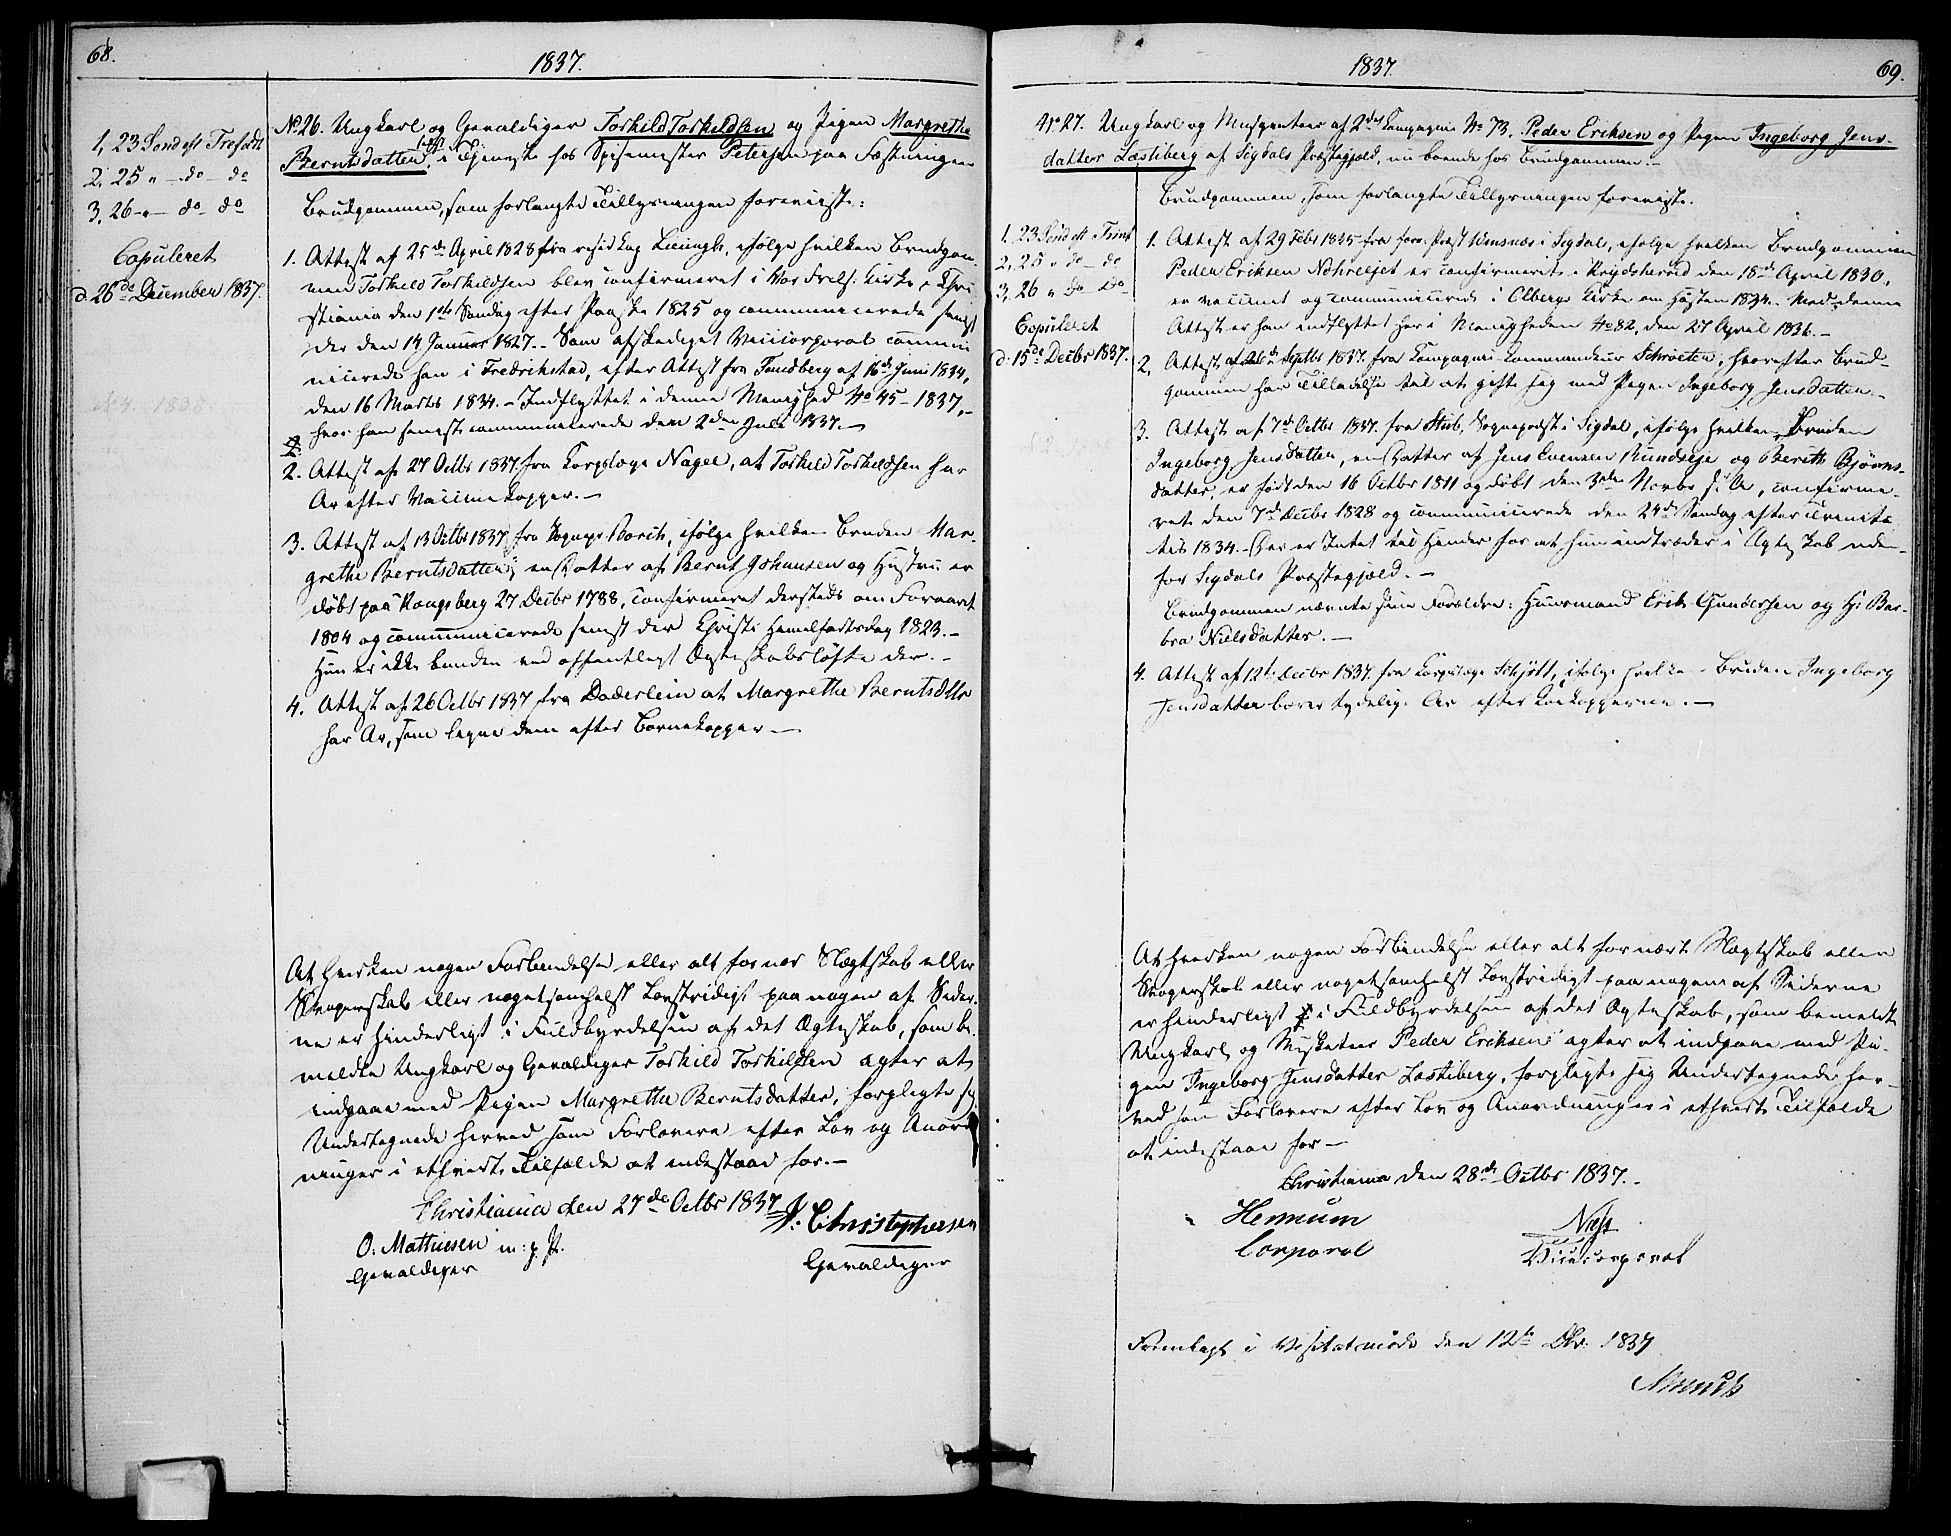 68.
1837.
1, 23 Sond eft Trefoldt
2, 25 " - do - do
3, 26 - " - do - do
Copuleret
d. 26de December 1837.
No 26. Ungkarl og Gevaldiger Torkild Torkildsen og Pigen Margrethe
Berntsdatter, i Tjeneste hos Spisemester Petersen paa Fæstningen
Brudgommen, som forlangte Tillysningen foreviiste:
1. Attest af 25de April 1828 fra resid Kap, ifølge hvilken Brudgom-
men Torkild Torkildsen blev confirmeret i Vor Frels: Kirke i Chri
stiania den 1ste Søndag efter Paaske 1825 og communicerede senest
der den 14 Januar 1827. - Som afskediget Vicecorporal commu
nicerede han i Fredrikstad, efter Attest fra Tandberg af 16de Juni 1834,
den 16 Marts 1834. - Indflyttet i denne Menighed No 45 - 1837, -
hvor han senest communicerede den 2den Juli 1837. -
2. Attest af 27 Octbr 1837 fra Korpslæge Nagel, at Torkild Torkildsen har
Ar efter Vaccinekopper. -
3. Attest af 13 Octbr 1837 fra Sognepr Borch, ifølge hvilken Bruden Mar-
grethe Berntsdatter, en Datter af Bernt Johansen og Hustru er
døbt paa Kongsberg 27 Decbr 1788, confirmeret dersteds om Foraaret
1804 og communicerede senest der Christi Himmelfartsdag 1823. -
Hun er ikke bunden ved offentligt Ægteskabsløfte der. -
4. Attest af 26 Octbr 1837 fra Døderlein at Margrethe Berntsdttr
har Ar, som ligne dem efter Børnekopper -
At hverken nogen Forbindelse eller alt for nær Slægtskab eller
Svogerskab eller nogetsomhelst Lovstridigt paa nogen af Sider-
ne er hinderligt i Fuldbyrdelsen af det Ægteskab, som be-
meldte Ungkarl og Gevaldiger Torkild Torkildsen agter at
indgaae med Pigen Margrethe Berntsdatter, forpligte sig
Undertegnede herved som Forlovere efter Lov og Anord
ninger i ethvert Tilfælde at indestaae for. -
Christiania den 27de Octbr 1837
O. Mathiesen m: p. P.
Gevaldiger
J. Christophersen
Gevaldiger
1837.
69.
1. 23 Sond eft Trinit
2, 25 " do - do
3, 26 " do - do -
Copuleret
d. 15de Decbr 1837.
No 27. Ungkarl og Musqueteer af 2det Compagnie No 73. Peder Eriksen og Pigen Ingeborg Jens-
datter Læstiberg af Sigdals Præstegjæld, nu boende hos Brudgommen. -
Brudgommen, som forlangte Tillysningen foreviste.
1. Attest af 29 Febr 1835 fra Præst i Sigdal, ifølge hvilken Brudgommen
Peder Eriksen er confirmeret i Krydsherred den 18de April 1830,
er vaccinet og communicerede i Olberg Kirke om Høsten 1834. Med denne
Attest er han indflyttet her i Menigheden No 82, den 27 April 1836. -
2, Attest af 26de Septbr 1837. fra Compagnie Commandeur Schrøeter, hvorefter Brud-
gommen har Tilladelse til at gifte sig med Pigen Ingeborg Jensdatter. -
3. Attest af 7de Octbr 1837. fra Stub, Sognepræst i Sigdal, ifølge hvilken Bruden
Ingeborg Jensdatter, en Datter af Jens Evensen og Bereth Bjørns-
datter, er født den 16 Octbr 1811 og døbt den 3die Novbr s. A, confirme-
ret den 7de Decbr 1828 og communicerede den 24de Søndag efter Trinita
tis 1834. - Der er Intet til Hinder for at hun indtræder i Ægteskab uden-
for Sigdals Præstegjæld. -
Brudgommen nævnte sine Forældre: Huusmand Erik Gundersen og H: Bar-
bra Nielsdatter. -
4. Attest af 12te Decbr 1837. fra Korpslæge Schjøtt, ifølge hvilken Bruden Ingeborg
Jensdatter bærer tydelig Ar efter Kokopperne. -
At hverken nogen Forbindelse eller alt for nært Slægtskab eller
Svogerskab eller nogetsomhelst Lovstridigt paa nogen af Siderne
er hinderligt i Fuldbyrdelsen af det Ægteskab, som bemeldte
Ungkarl og Musketeer Peder Eriksen agter at indgaae med Pi-
gen Ingeborg Jensdatter Læstiberg, forpligte sig Undertegnede her-
ved som Forlovere efter Lov og Anordninger i ethvert Tilfælde
at indestaae for -
Christiania den 28de Octbr 1837. -
Hennum
Corporal
Næss
Vicecorporal
Fremlagt i Visitatsmøde den 12te Dbr. 1837